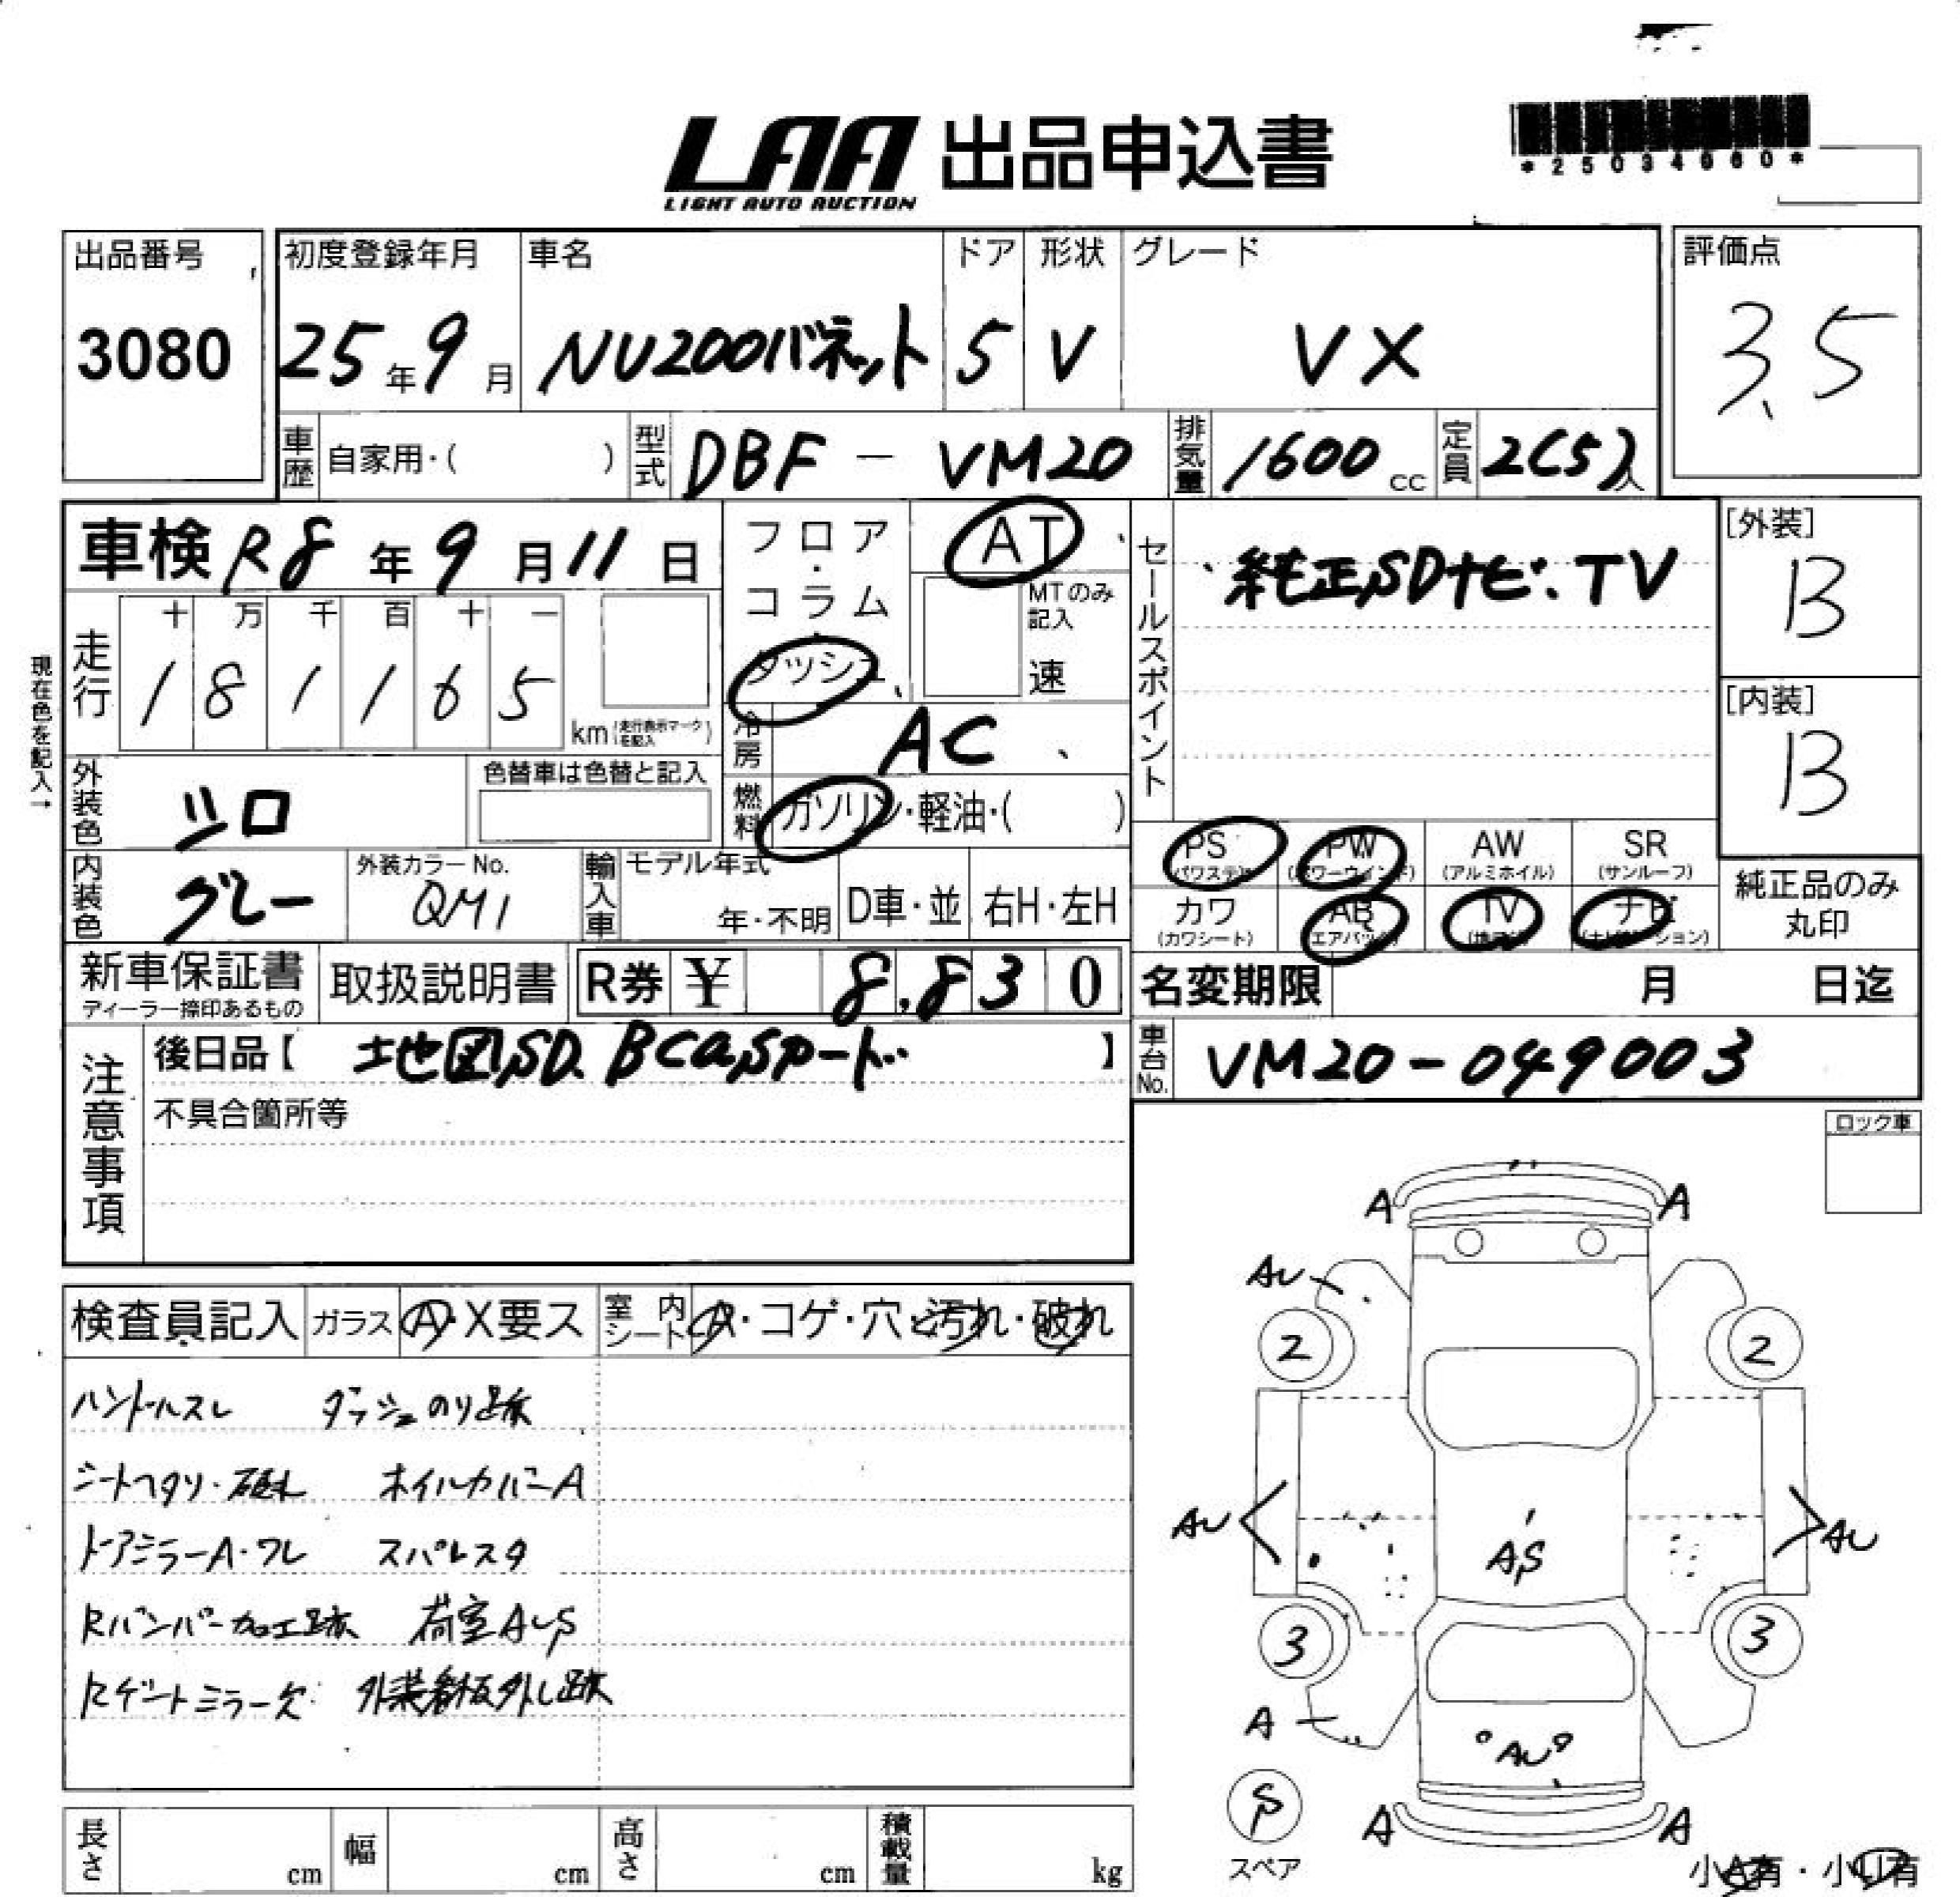 LAA 出品申込書
LIGHT AUTO AUCTION
*25034960*
出品番号
3080
初度登録年月
25年9月
車名
NV200バネット
ドア
5
形状
V
グレード
VX
評価点
3.5
車歴 自家用・( )
型式 DBF - VM20
排気量 1600 cc
定員 2(5)人
車検 R8年9月11日
フロア・コラム・ダッシュ
AT
MTのみ記入
速
セールスポイント
純正SDナビ.TV
[外装]
B
[内装]
B
現在色を記入→
走行
十 万 千 百 十 一
1 8 1 1 6 5
km (走行表示マークを記入)
冷房 AC
外装色 シロ
色替車は色替と記入
燃料 ガソリン・軽油・( )
PS (パワステ)
PW (パワーウインド)
AW (アルミホイル)
SR (サンルーフ)
カワ (カワシート)
AB (エアバック)
TV (地デジ)
ナビ (ナビゲーション)
純正品のみ丸印
内装色 グレー
外装カラーNo.
QM1
輸入車
モデル年式
年・不明
D車・並
右H・左H
新車保証書
ディーラー捺印あるもの
取扱説明書
R券 ¥ 8,830
名変期限 月 日迄
注意事項
後日品【 地図SD. Bcasカード 】
車台No. VM20-049003
不具合箇所等
ロック車
検査員記入 ガラス A・X要ス 室内シート A・コゲ・穴・汚れ・破れ
ハンドルスレ ダッシュのり跡
シートヘタリ・破れ ホイルカバーA
ドアミラーA・ワレ スペアレスタ
Rバンパー加工跡 荷室AUS
Rゲートミラー欠 外装看板外し跡
A A
AU
2 2
AU AU
AS
3 3
A
AU
S
スペア
A A
小A有・小U有
長さ cm 幅 cm 高さ cm 積載量 kg